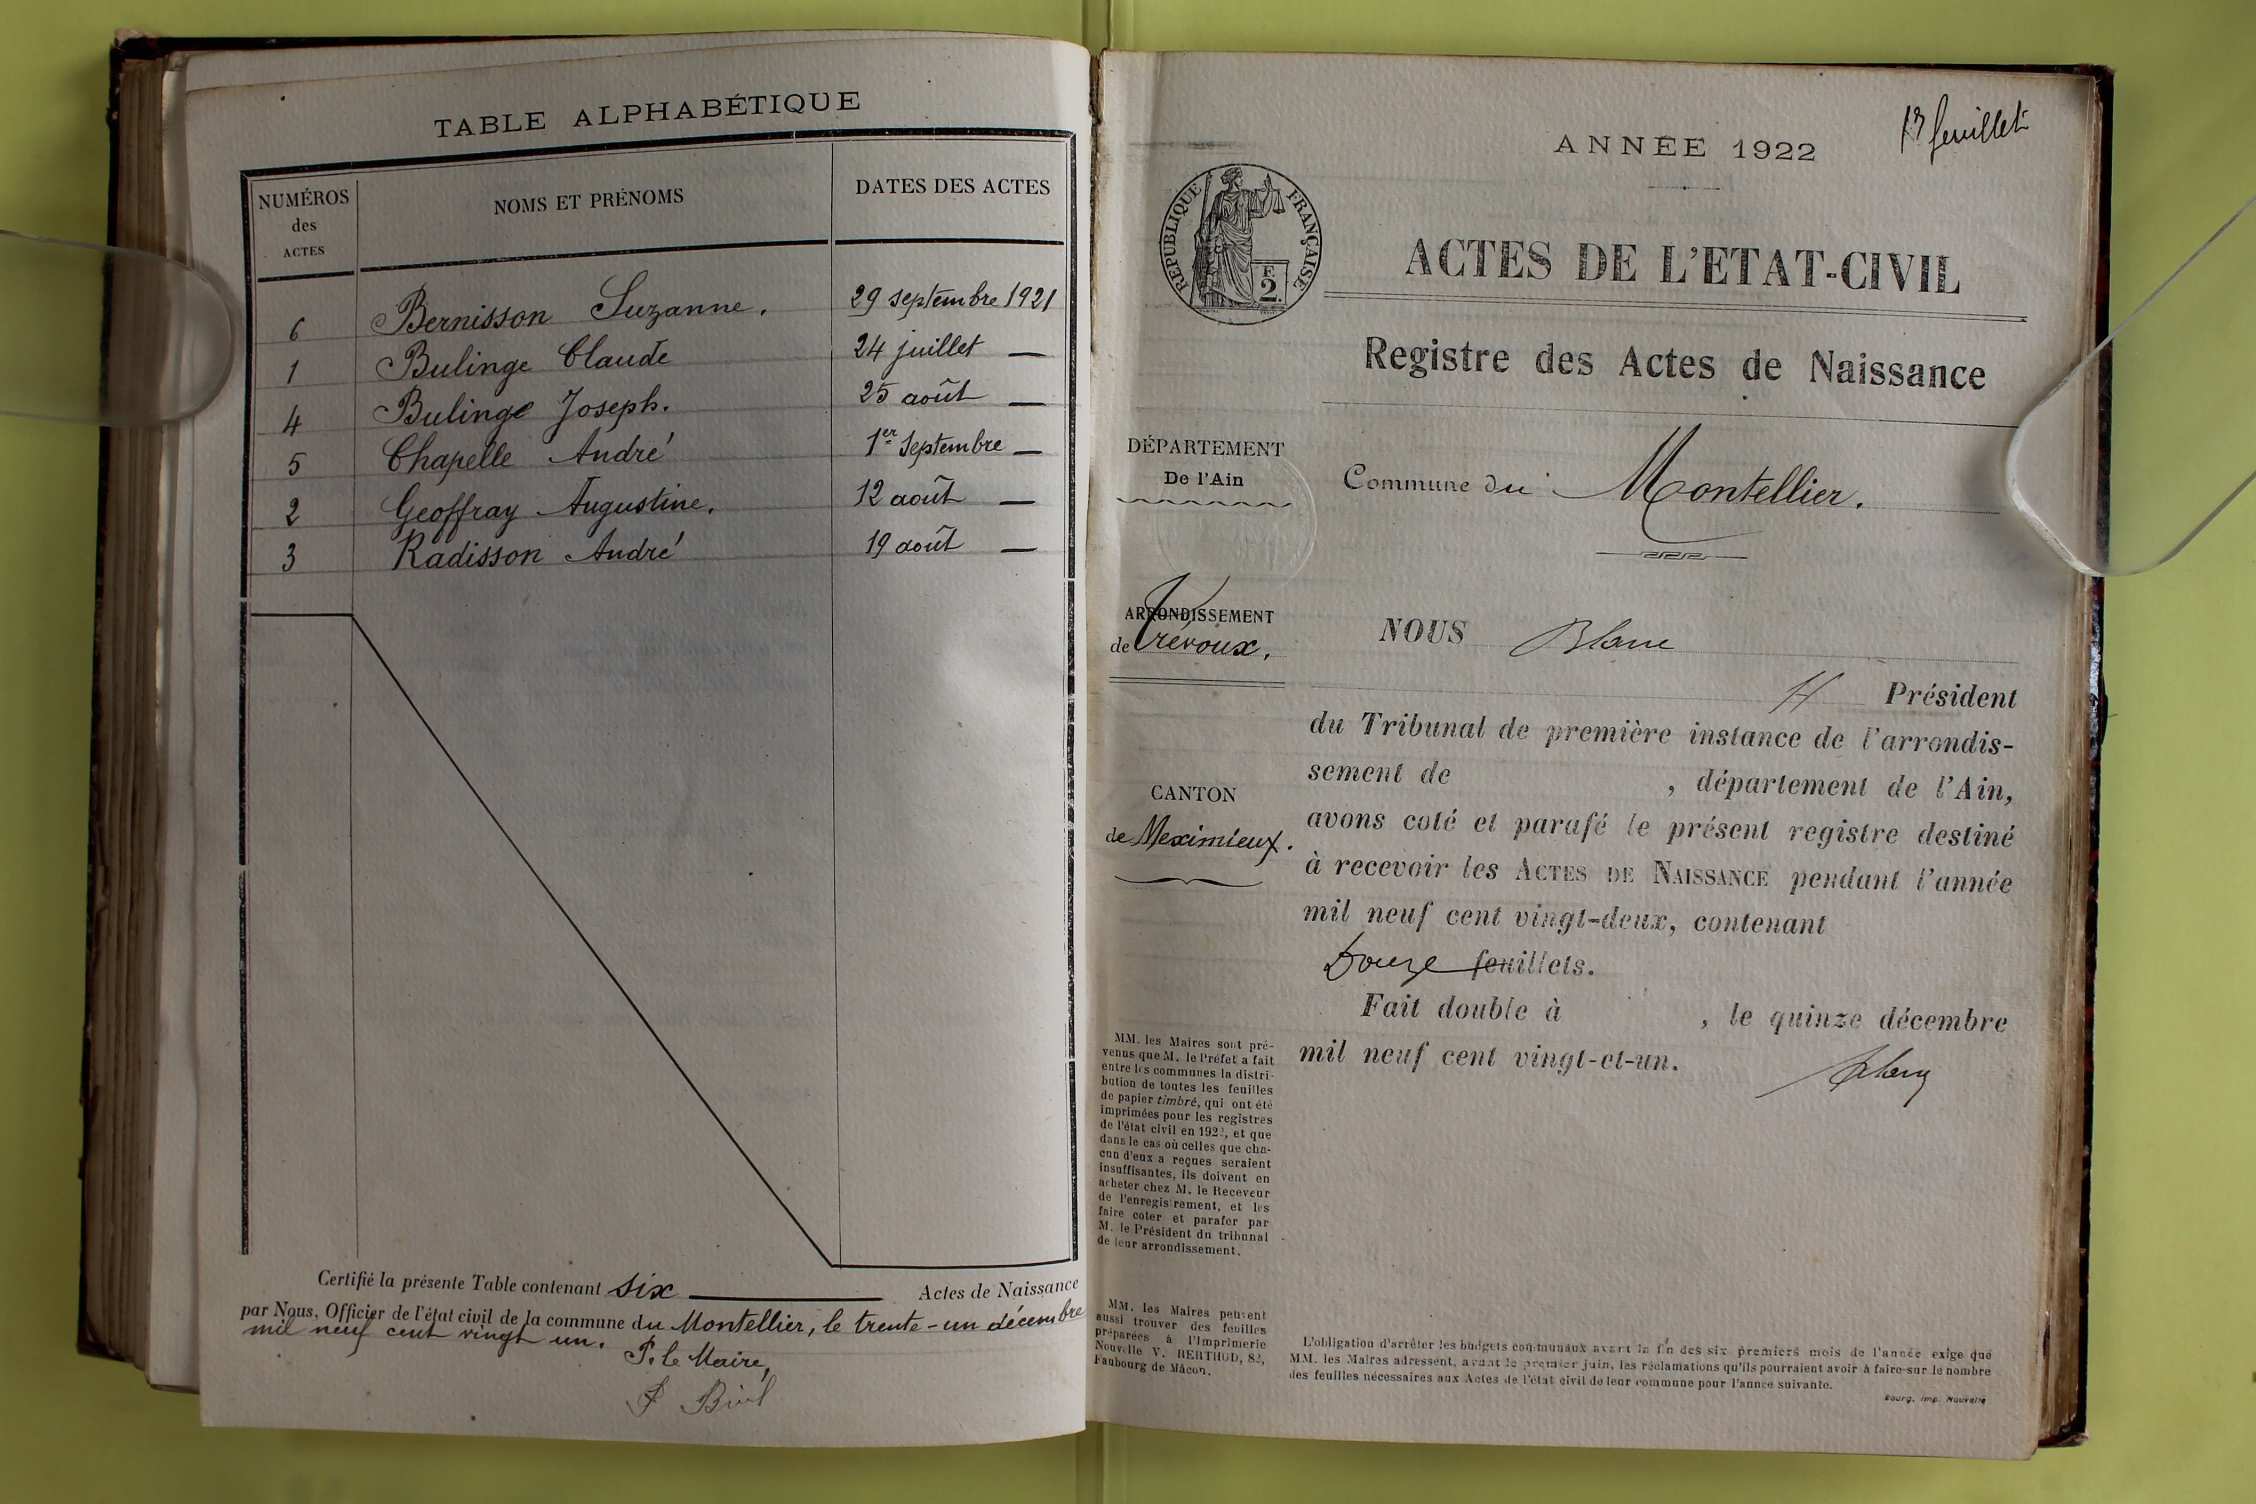 TABLE ALPHABÉTIQUE
NUMÉROS
des
ACTES
NOMS ET PRÉNOMS
DATES DES ACTES
6 Bernisson Suzanne. 29 septembre 1921
1 Bulinge Claude 24 juillet —
4 Bulinge Joseph. 25 août —
5 Chapelle André 1er Septembre —
2 Geoffray Augustine. 12 août —
3 Radisson André 19 août —
Certifié la présente Table contenant six Actes de Naissance
par Nous, Officier de l'état civil de la commune du Montellier, le trente-un décembre
mil neuf cent vingt un.
P. le Maire,
13 feuillet
ANNÉE 1922
RÉPUBLIQUE FRANÇAISE
F.
2.
ACTES DE L'ETAT-CIVIL
Registre des Actes de Naissance
DÉPARTEMENT
De l'Ain
Commune du Montellier.
ARRONDISSEMENT
de Trévoux.
CANTON
de Meximieux.
NOUS Blanc
Président
du Tribunal de première instance de l'arrondis-
sement de , département de l'Ain,
avons coté et parafé le présent registre destiné
à recevoir les ACTES DE NAISSANCE pendant l'année
mil neuf cent vingt-deux, contenant
Douze feuillets.
Fait double à , le quinze décembre
mil neuf cent vingt-et-un.
MM. les Maires sont pré-
venus que M. le Préfet a fait
entre les communes la distri-
bution de toutes les feuilles
de papier timbré, qui ont été
imprimées pour les registres
de l'état civil en 1922, et que
dans le cas où celles que cha-
cun d'eux a reçues seraient
insuffisantes, ils doivent en
acheter chez M. le Receveur
de l'enregistrement, et les
faire coter et parafer par
M. le Président du tribunal
de leur arrondissement.
MM. les Maires peuvent
aussi trouver des feuilles
préparées à l'Imprimerie
Nouvelle V. BERTHOD, 82,
Faubourg de Mâcon.
L'obligation d'arrêter les budgets communaux avant la fin des six premiers mois de l'année exige que
MM. les Maires adressent, avant le premier juin, les réclamations qu'ils pourraient avoir à faire sur le nombre
des feuilles nécessaires aux Actes de l'état civil de leur commune pour l'année suivante.
Bourg, Imp. Nouvelle